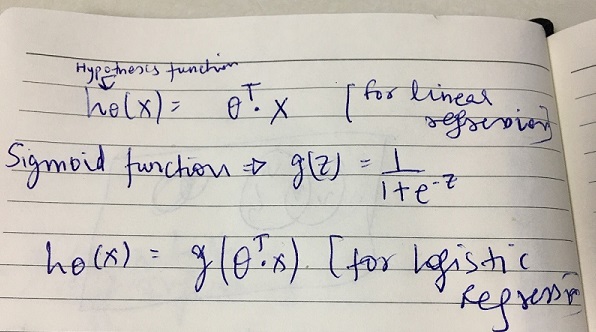 Hypothesis function
hθ(x) = θᵀ· x [for linear
regression]
Sigmoid function ⇒ g(z) = 1/(1+e^-z)
hθ(x) = g(θᵀ·x). [for logistic
regression